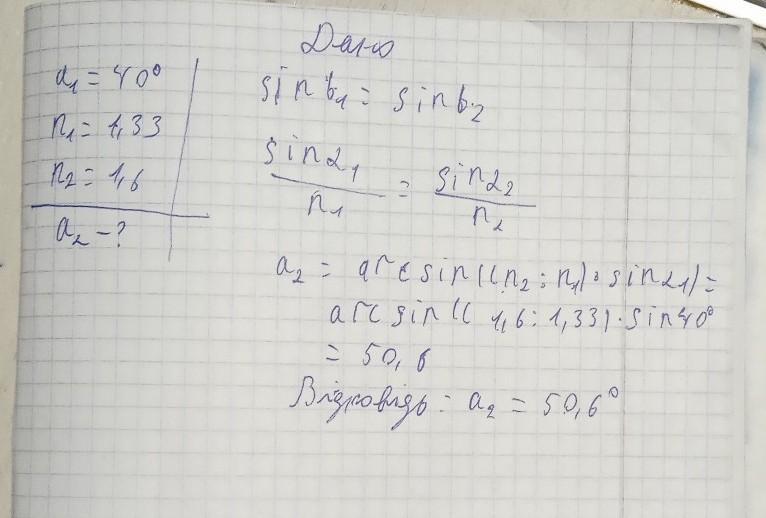 Дано
α₁ = 40°
n₁ = 1,33
n₂ = 1,6
a₂ - ?
sin b₁ = sin b₂
sin α₁ / n₁ = sin α₂ / n₂
a₂ = arcsin((n₂ : n₁) · sin α₁) =
arcsin(( 1,6 : 1,33) · sin 40°
= 50,6
Відповідь: a₂ = 50,6°